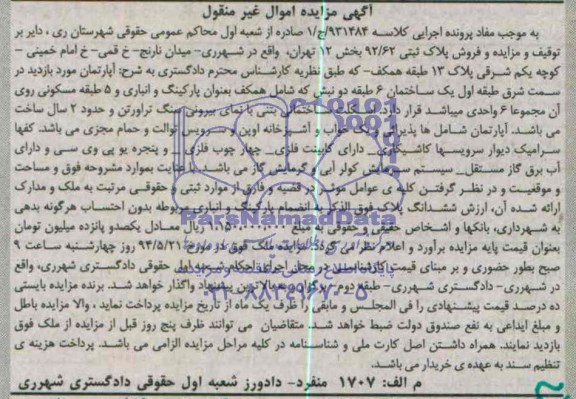 آگهی مزایده اموال غیر منقول
به موجب مفاد پرونده اجرایی کلاسه ۹۳۱۴۸۳/ج/۱ صادره از شعبه اول محاکم عمومی حقوقی شهرستان ری، دایر بر
توقیف و مزایده و فروش پلاک ثبتی ۹۲/۶۲ بخش ۱۲ تهران، واقع در شهرری- میدان نارنج- خ قمی- خ امام خمینی -
کوچه یکم شرقی پلاک ۱۳ طبقه همکف- که طبق نظریه کارشناس محترم دادگستری به شرح: آپارتمان مورد بازدید در
سمت شرق طبقه اول یک ساختمان ۶ طبقه دو نبش که شامل همکف بعنوان پارکینگ و انباری و ۵ طبقه مسکونی روی
آن مجموعا ۶ واحدی میباشد قرار دارد. اسکلت ساختمان بتنی با نمای بیرونی سنگ تراورتن و حدود ۲ سال ساخت
می باشد. آپارتمان شامل ها پذیرایی و یک خواب و آشپزخانه اوپن و سرویس توالت و حمام مجزی می باشد. کفها
سرامیک دیوار سرویسها کاشیکاری- دارای کابینت فلزی- چهار چوب فلزی- و پنجره یو پی وی سی و دارای
آب برق گاز مستقل- سیستم سرمایش کولر آبی و گرمایش گاز می باشد. با عنایت بموارد مشروحه فوق و مساحت
و موقعیت و در نظر گرفتن کلیه ی عوامل موثر در قضیه و فارق از موارد ثبتی و حقوقی مرتبت به ملک و مدارک
ارائه شده آن، ارزش ششدانگ پلاک فوق الذکر به انضمام پارکینگ و انباری مربوطه بدون احتساب هرگونه بدهی
به شهرداری، بانکها و اشخاص حقیقی و حقوقی به مبلغ ۱/۱۵۰۰۰۰/۰۰۰ ریال معادل یکصدو پانزده میلیون تومان
بعنوان قیمت پایه مزایده برآورد و اعلام نظر می گردد. مزایده ملک فوق در مورخ ۹۴/۵/۲۱ روز چهارشنبه ساعت ۹
صبح بطور حضوری و بر مبنای قیمت کارشناسی در محل اجرای احکام شعبه اول حقوقی دادگستری شهرری، واقع
در شهرری- دادگستری شهرری- طبقه دوم برگزار و به بالاترین پیشنهاد واگذار خواهد شد. برنده مزایده بایستی
ده درصد قیمت پیشنهادی را فی المجلس و مابقی را ظرف یک ماه از تاریخ مزایده پرداخت نماید، والا مزایده باطل
و مبلغ ایداعی به نفع صندوق دولت ضبط خواهد شد. متقاضیان می توانند ظرف پنج روز قبل از مزایده از ملک فوق
بازدید نمایند. همراه داشتن اصل کارت ملی و شناسنامه در کلیه مراحل مزایده الزامی می باشد. پرداخت هزینه ی
تنظیم سند به عهده ی خریدار می باشد.
م الف: ۱۷۰۷ منفرد- دادورز شعبه اول حقوقی دادگستری شهرری
ParsNamadData
۰۲۱-۸۸۳۴۹۶۷۰